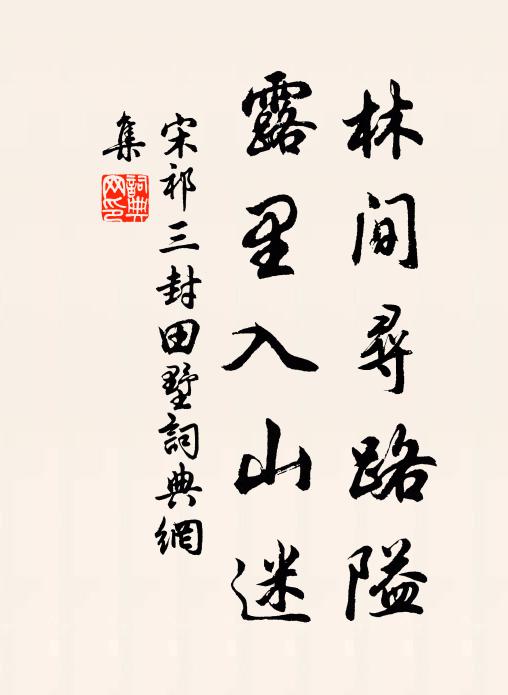 林間尋路隘
露里入山迷
宋祁三封田墅詞典網
集
詞典
网印